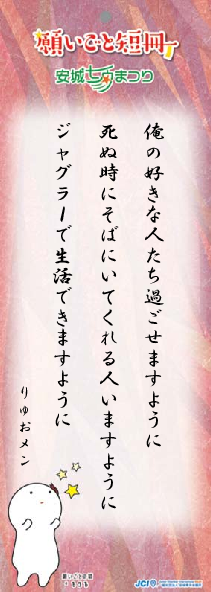 願いごと短冊
安城七夕まつり
俺の好きな人たち過ごせますように
死ぬ時にそばにいてくれる人いますように
ジャグラーで生活できますように
りゅおメン
願いごと短冊
JCI